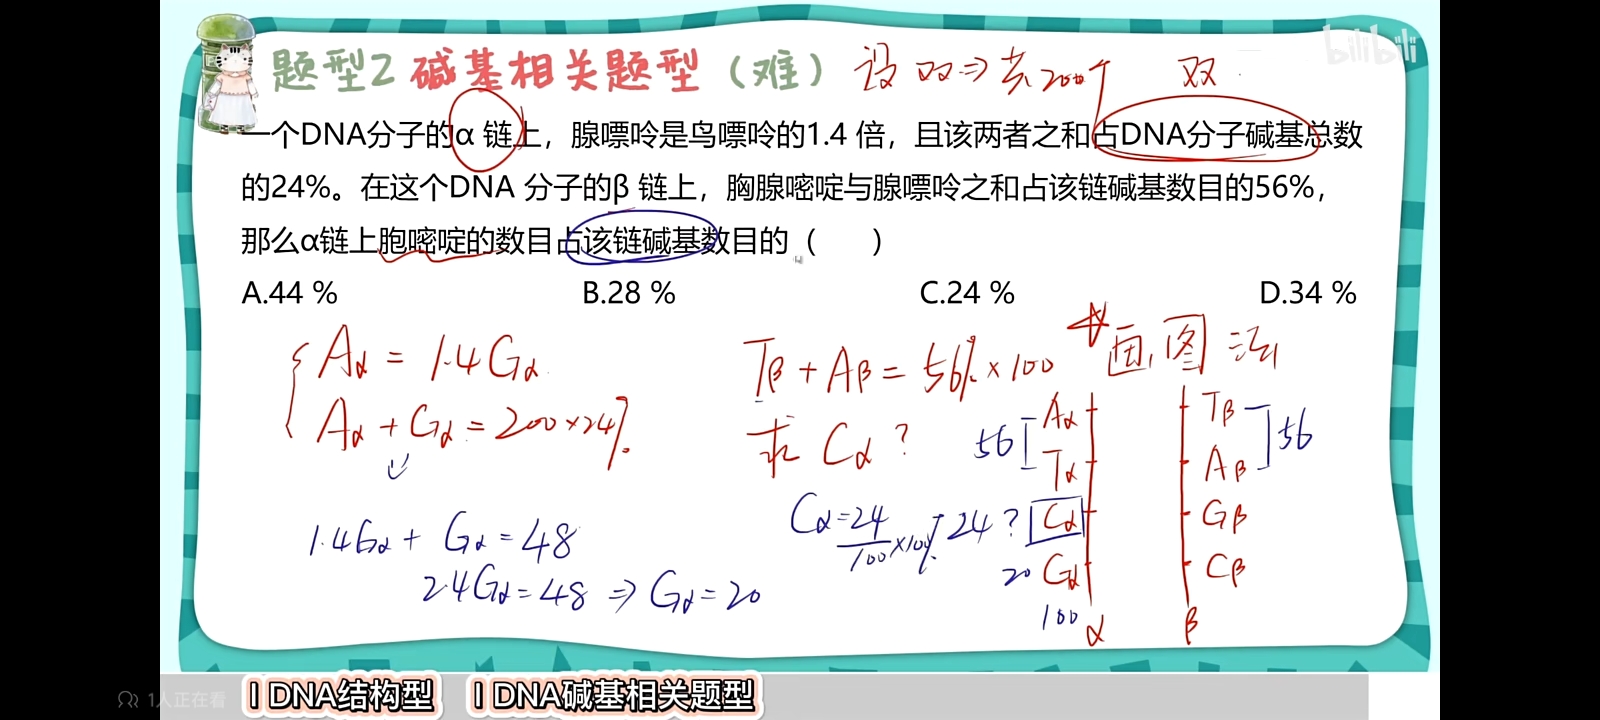 题型2 碱基相关题型（难） 设双⇒共200个 双
bilibili
一个DNA分子的α 链上，腺嘌呤是鸟嘌呤的1.4 倍，且该两者之和占DNA分子碱基总数
的24%。在这个DNA 分子的β 链上，胸腺嘧啶与腺嘌呤之和占该链碱基数目的56%，
那么α链上胞嘧啶的数目占该链碱基数目的（　　）
A.44 % B.28 % C.24 % D.34 %
Aα = 1.4Gα
Aα + Gα = 200×24%
1.4Gα + Gα = 48
2.4Gα = 48 ⇒ Gα = 20
Tβ + Aβ = 56%×100
求 Cα ?
Cα = 24/100 ×100%
画图法
56 Aα Tβ 56
Tα Aβ
24 ? Cα Gβ
20 Gα Cβ
100 α β
1人正在看
I DNA结构型 I DNA碱基相关题型